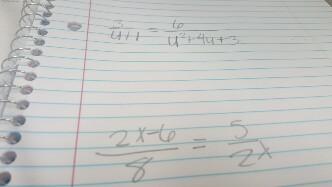 3/(u+1) = 6/(u²+4u+3)
(2x-6)/8 = 5/(2x)